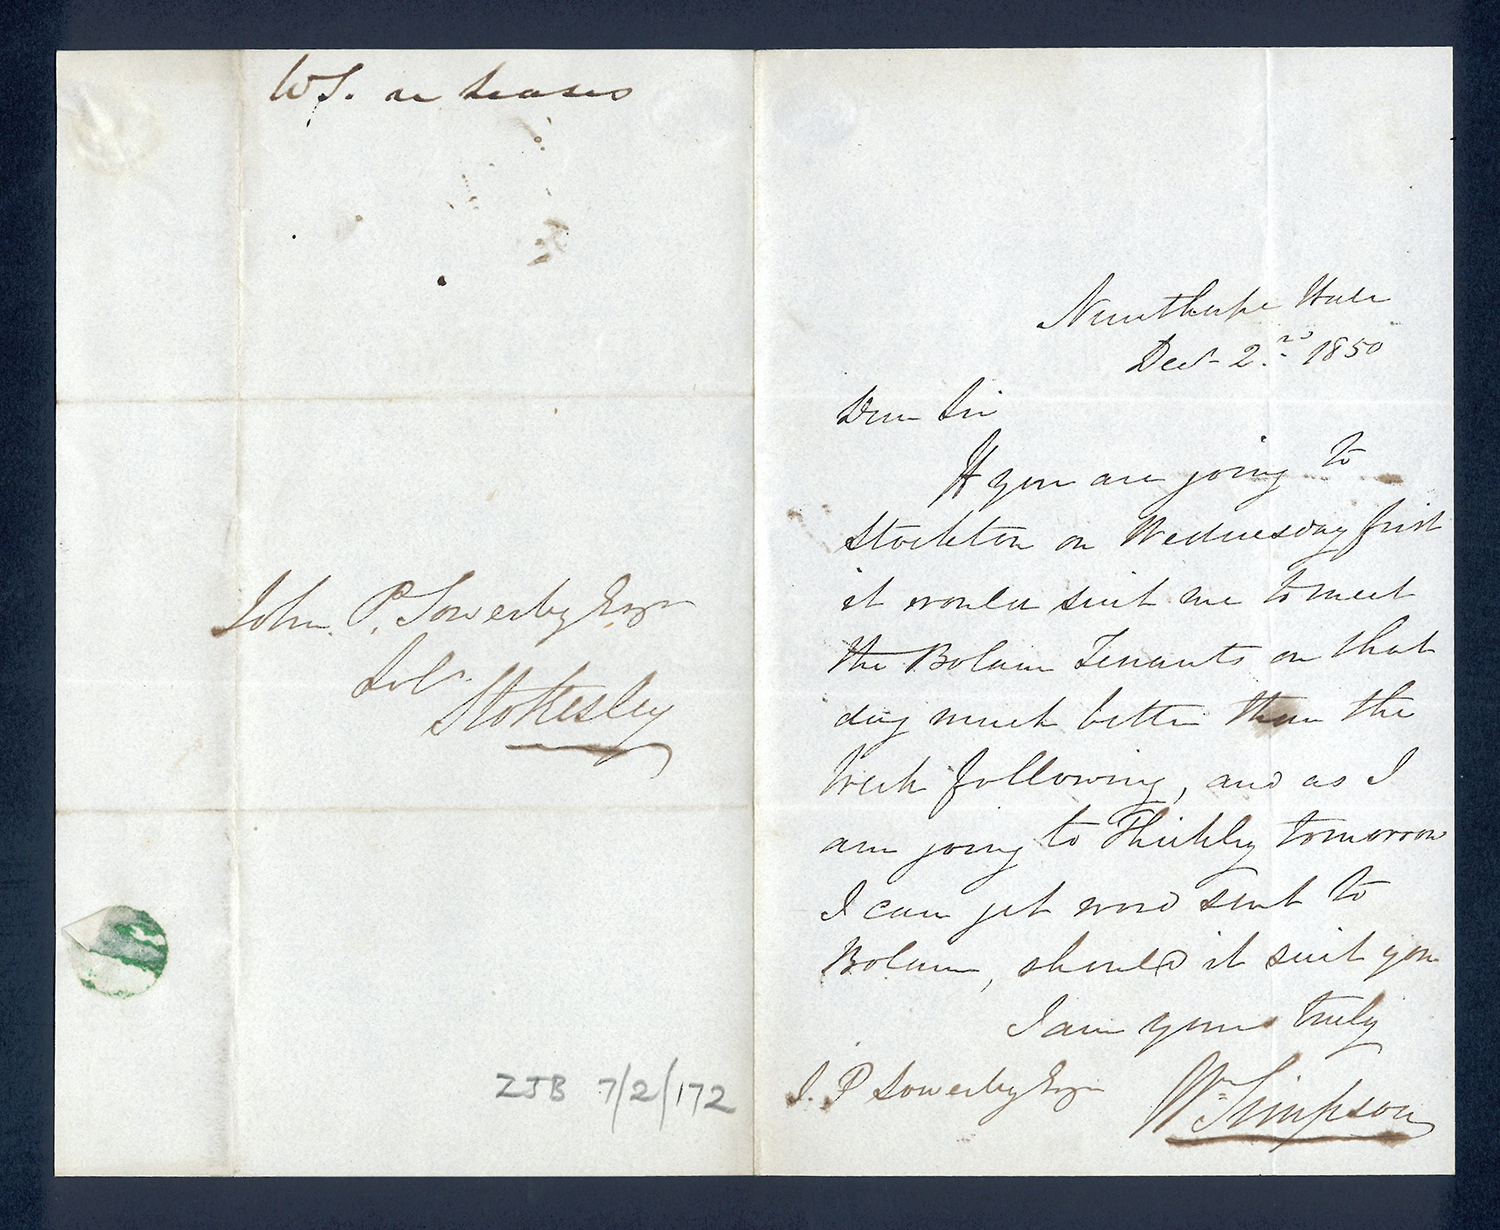 WS. re leases
John P. Sowerby Esqr
Solr
Stokesley
ZJB 7/2/172
Nunthorpe Hall
Decr 2nd 1850
Dear Sir
If you are going to
Stockton on Wednesday first
it would suit me to meet
the Bolam Tenants on that
day much better than the
Week following, and as I
am going to Thickley tomorrow
I can get word sent to
Bolam, should it suit you
I am yours truly
J. P Sowerby Esqr
Wm Simpson